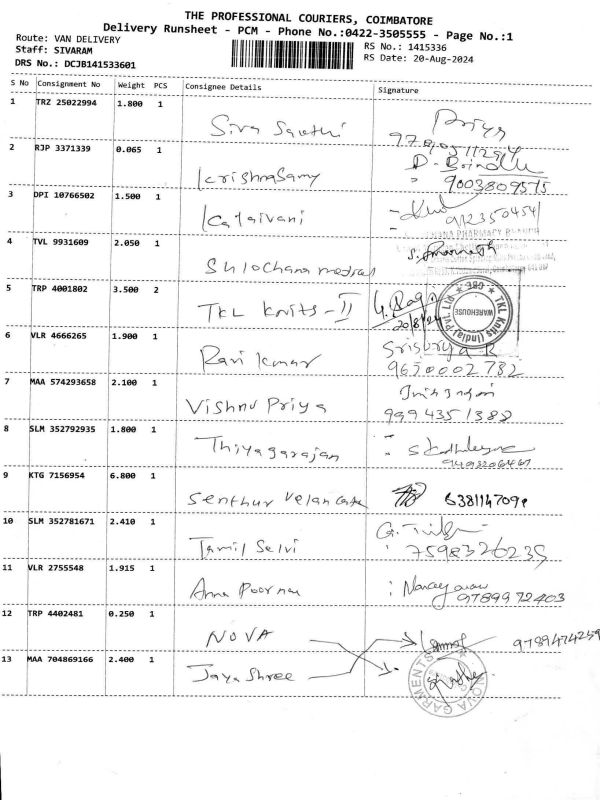 THE PROFESSIONAL COURIERS, COIMBATORE
Delivery Runsheet - PCM - Phone No.:0422-3505555 - Page No.:1
Route: VAN DELIVERY
Staff: SIVARAM
RS No.: 1415336
DRS No.: DCJB141533601
RS Date: 20-Aug-2024
S No Consignment No Weight PCS Consignee Details Signature
1 TRZ 25022994 1.800 1
Siva Sakthi Priya
2 RJP 3371339 0.065 1
Krishnasamy D. Brindha
9003809515
3 DPI 10766502 1.500 1
Kalaivani
4 TVL 9931609 2.050 1
Sulochana medical
5 TRP 4001802 3.500 2
TKL Knits - II 20/8/24
TKL Knits (India) Pvt Ltd ★ CBE ★
WAREHOUSE
6 VLR 4666265 1.900 1
Ravi Kumar Srisurya R
9650002782
7 MAA 574293658 2.100 1
Vishnu Priya 9994351388
8 SLM 352792935 1.800 1
Thiyagarajan
9 KTG 7156954 6.800 1
Senthur Velan
10 SLM 352781671 2.410 1
Tamil Selvi 7598326235
11 VLR 2755548 1.915 1
Anna Poorna : Narayanan
9789972403
12 TRP 4402481 0.250 1
NOVA 9789474259
13 MAA 704869166 2.400 1
Jaya Shree
NOVA GARMENTS